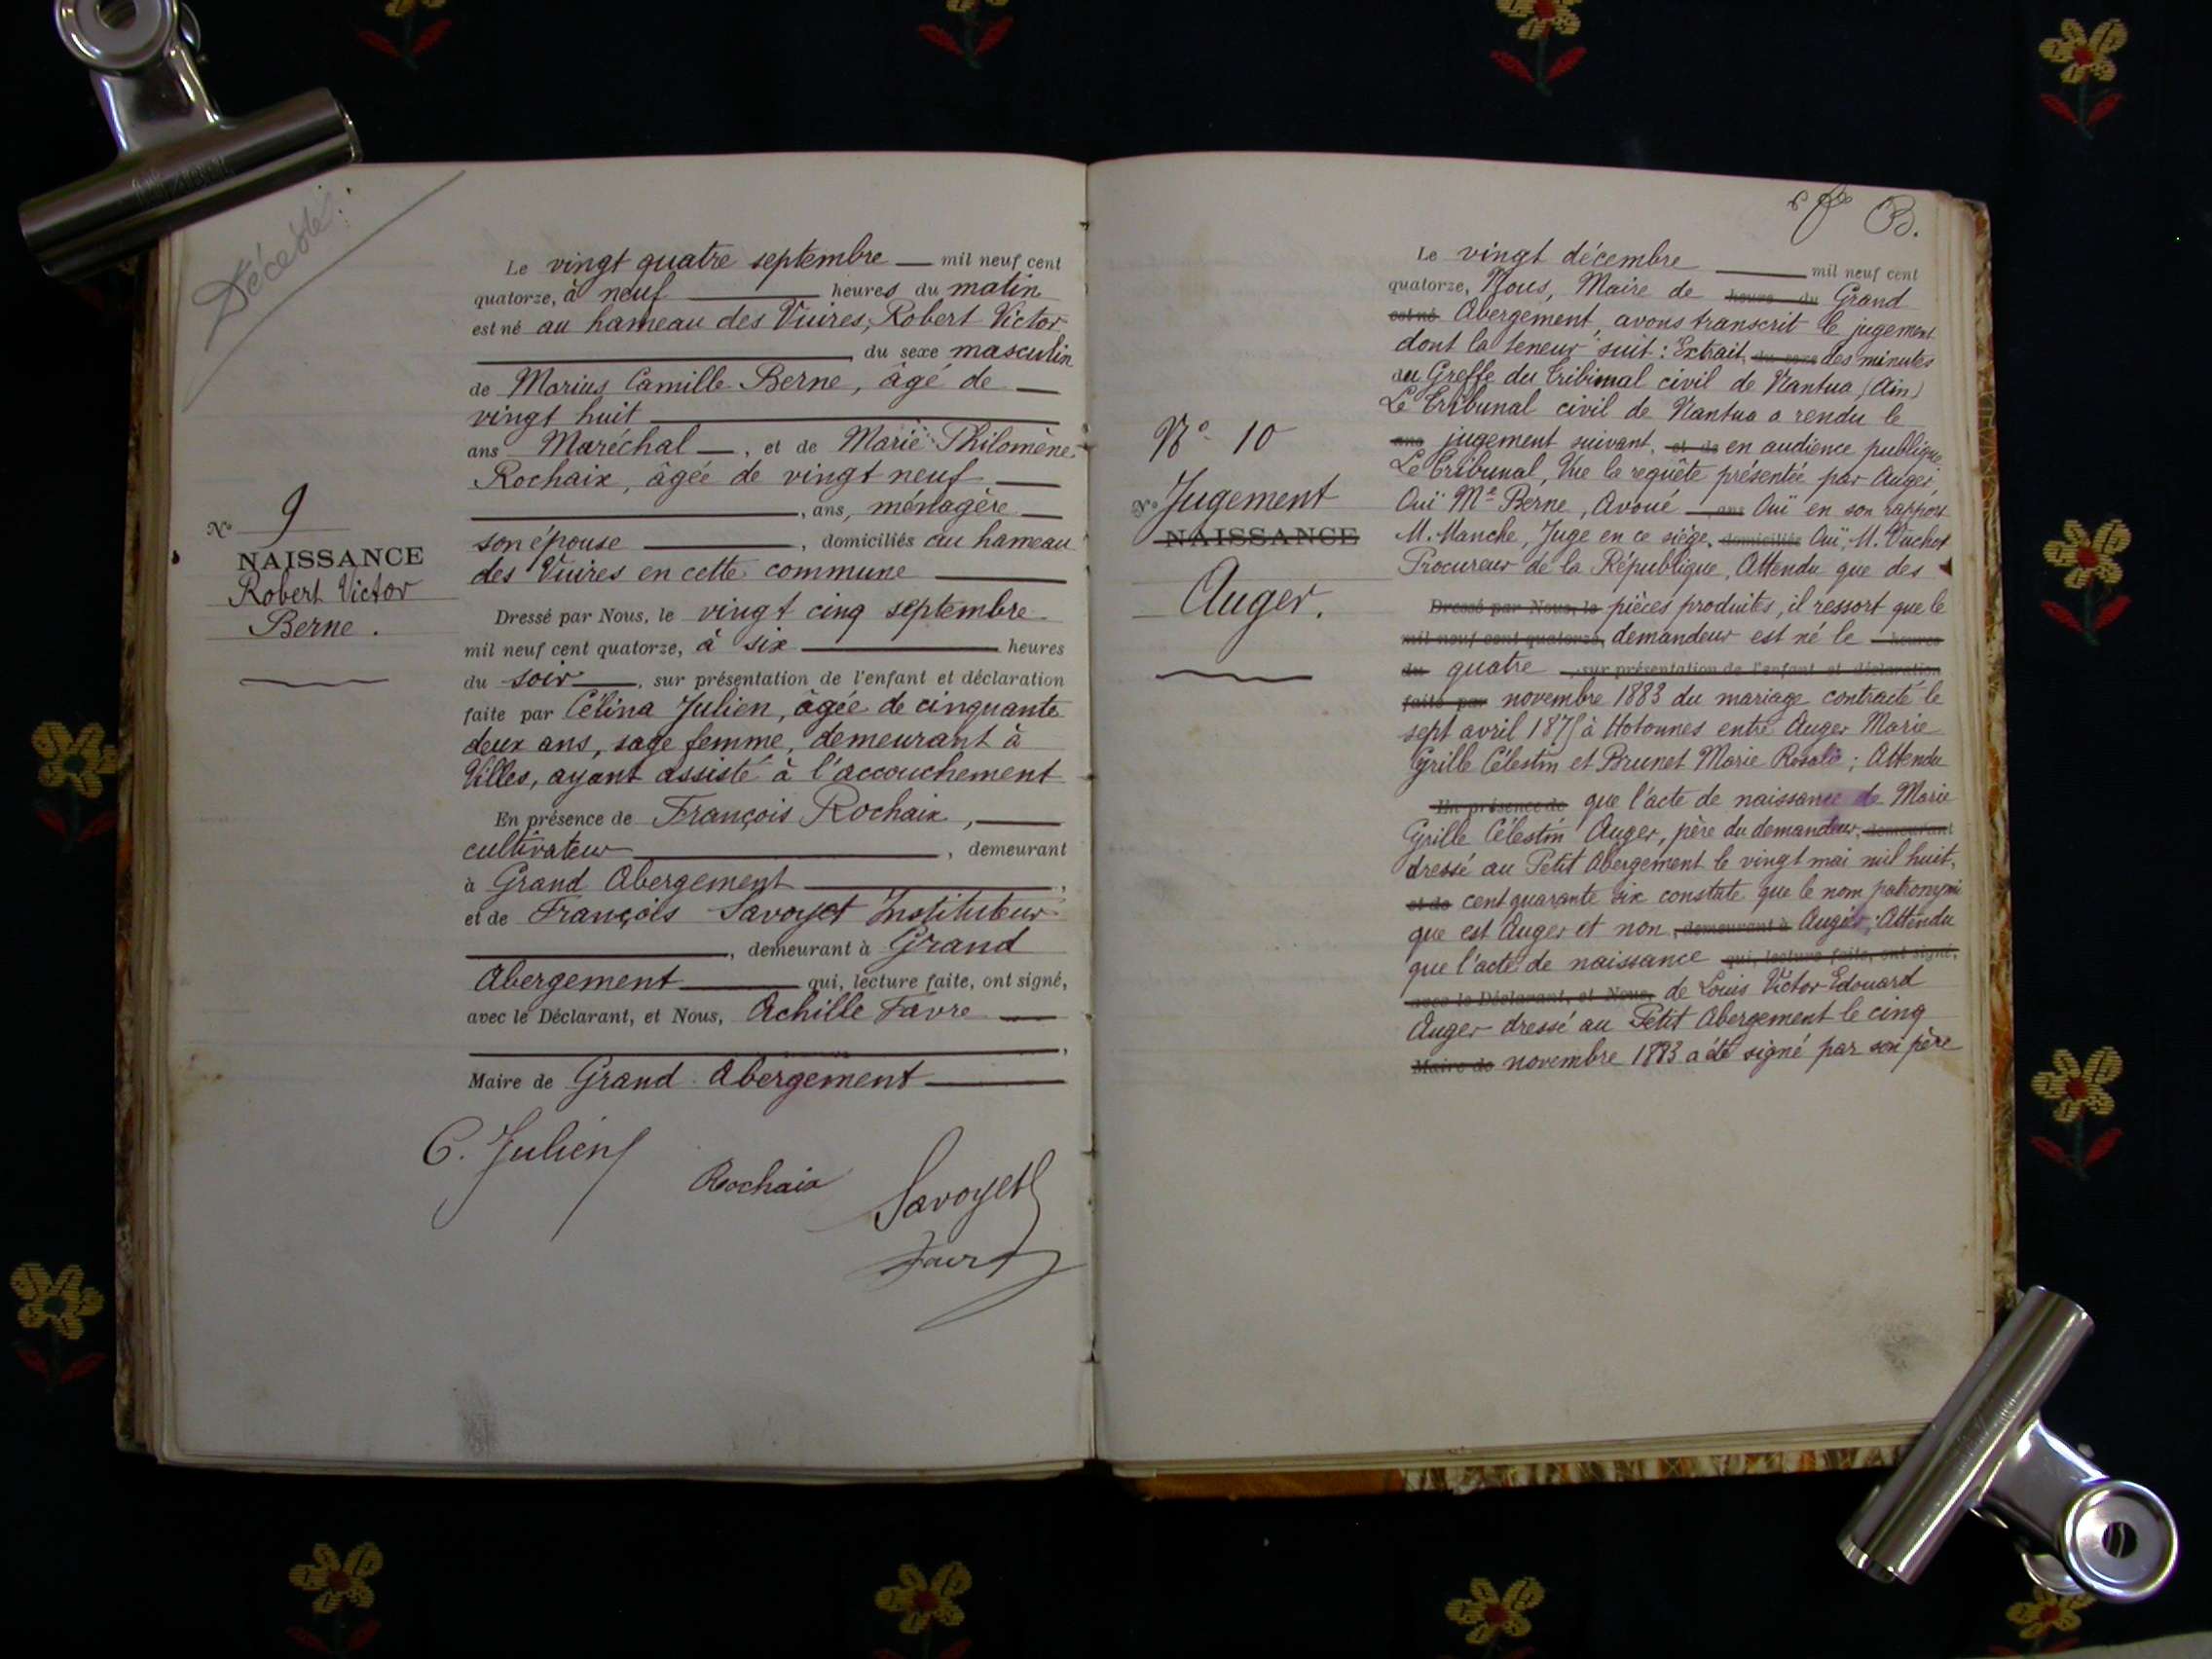 Décédé
Le vingt quatre septembre mil neuf cent
quatorze, à neuf heures du matin
est né au hameau des Vuires, Robert Victor
, du sexe masculin
de Marius Camille Berne, âgé de
vingt huit
ans Maréchal, et de Marie Philomène
Rochaix, âgée de vingt neuf
, ans, ménagère
son épouse, domiciliés au hameau
des Vuires en cette commune
N° 9
NAISSANCE
Robert Victor
Berne.
Dressé par Nous, le vingt cinq septembre
mil neuf cent quatorze, à six heures
du soir, sur présentation de l'enfant et déclaration
faite par Célina Julien, âgée de cinquante
deux ans, sage femme, demeurant à
Villes, ayant assisté à l'accouchement
En présence de François Rochaix,
cultivateur, demeurant
à Grand Abergement,
et de François Savoyet Instituteur
, demeurant à Grand
Abergement qui, lecture faite, ont signé,
avec le Déclarant, et Nous, Achille Favre
,
Maire de Grand Abergement
C. Julien
Rochaix
Savoyet
Favre
B.
Le vingt décembre mil neuf cent
quatorze, Nous, Maire de heure du Grand
est né Abergement, avons transcrit le jugement
dont la teneur suit : Extrait, du sexe des minutes
au Greffe du Tribunal civil de Nantua (Ain)
Le Tribunal civil de Nantua a rendu le
ans jugement suivant, et de en audience publique
Le Tribunal, Vue la requête présentée par Auger,
Ouï Me Berne, Avoué, ans Ouï en son rapport
M. Manche, Juge en ce siége, domiciliés Ouï, M. Vuchot
Procureur de la République, Attendu que des
N° 10
N° Jugement
NAISSANCE
Auger.
Dressé par Nous, le pièces produites, il ressort que le
mil neuf cent quatorze, demandeur est né le heures
du quatre, sur présentation de l'enfant et déclaration
faite par novembre 1883 du mariage contracté le
sept avril 1875 à Hotonnes entre Auger Marie
Cyrille Célestin et Brunet Marie Rosalie ; Attendu
En présence de que l'acte de naissance de Marie
Cyrille Célestin Auger, père du demandeur, demeurant
dressé au Petit Abergement le vingt mai mil huit,
et de cent quarante six constate que le nom patronymi
que est Auger et non, demeurant à Augér, Attendu
que l'acte de naissance qui, lecture faite, ont signé,
avec le Déclarant, et Nous, de Louis Victor Edouard
Auger dressé au Petit Abergement le cinq
Maire de novembre 1883 a été signé par son père